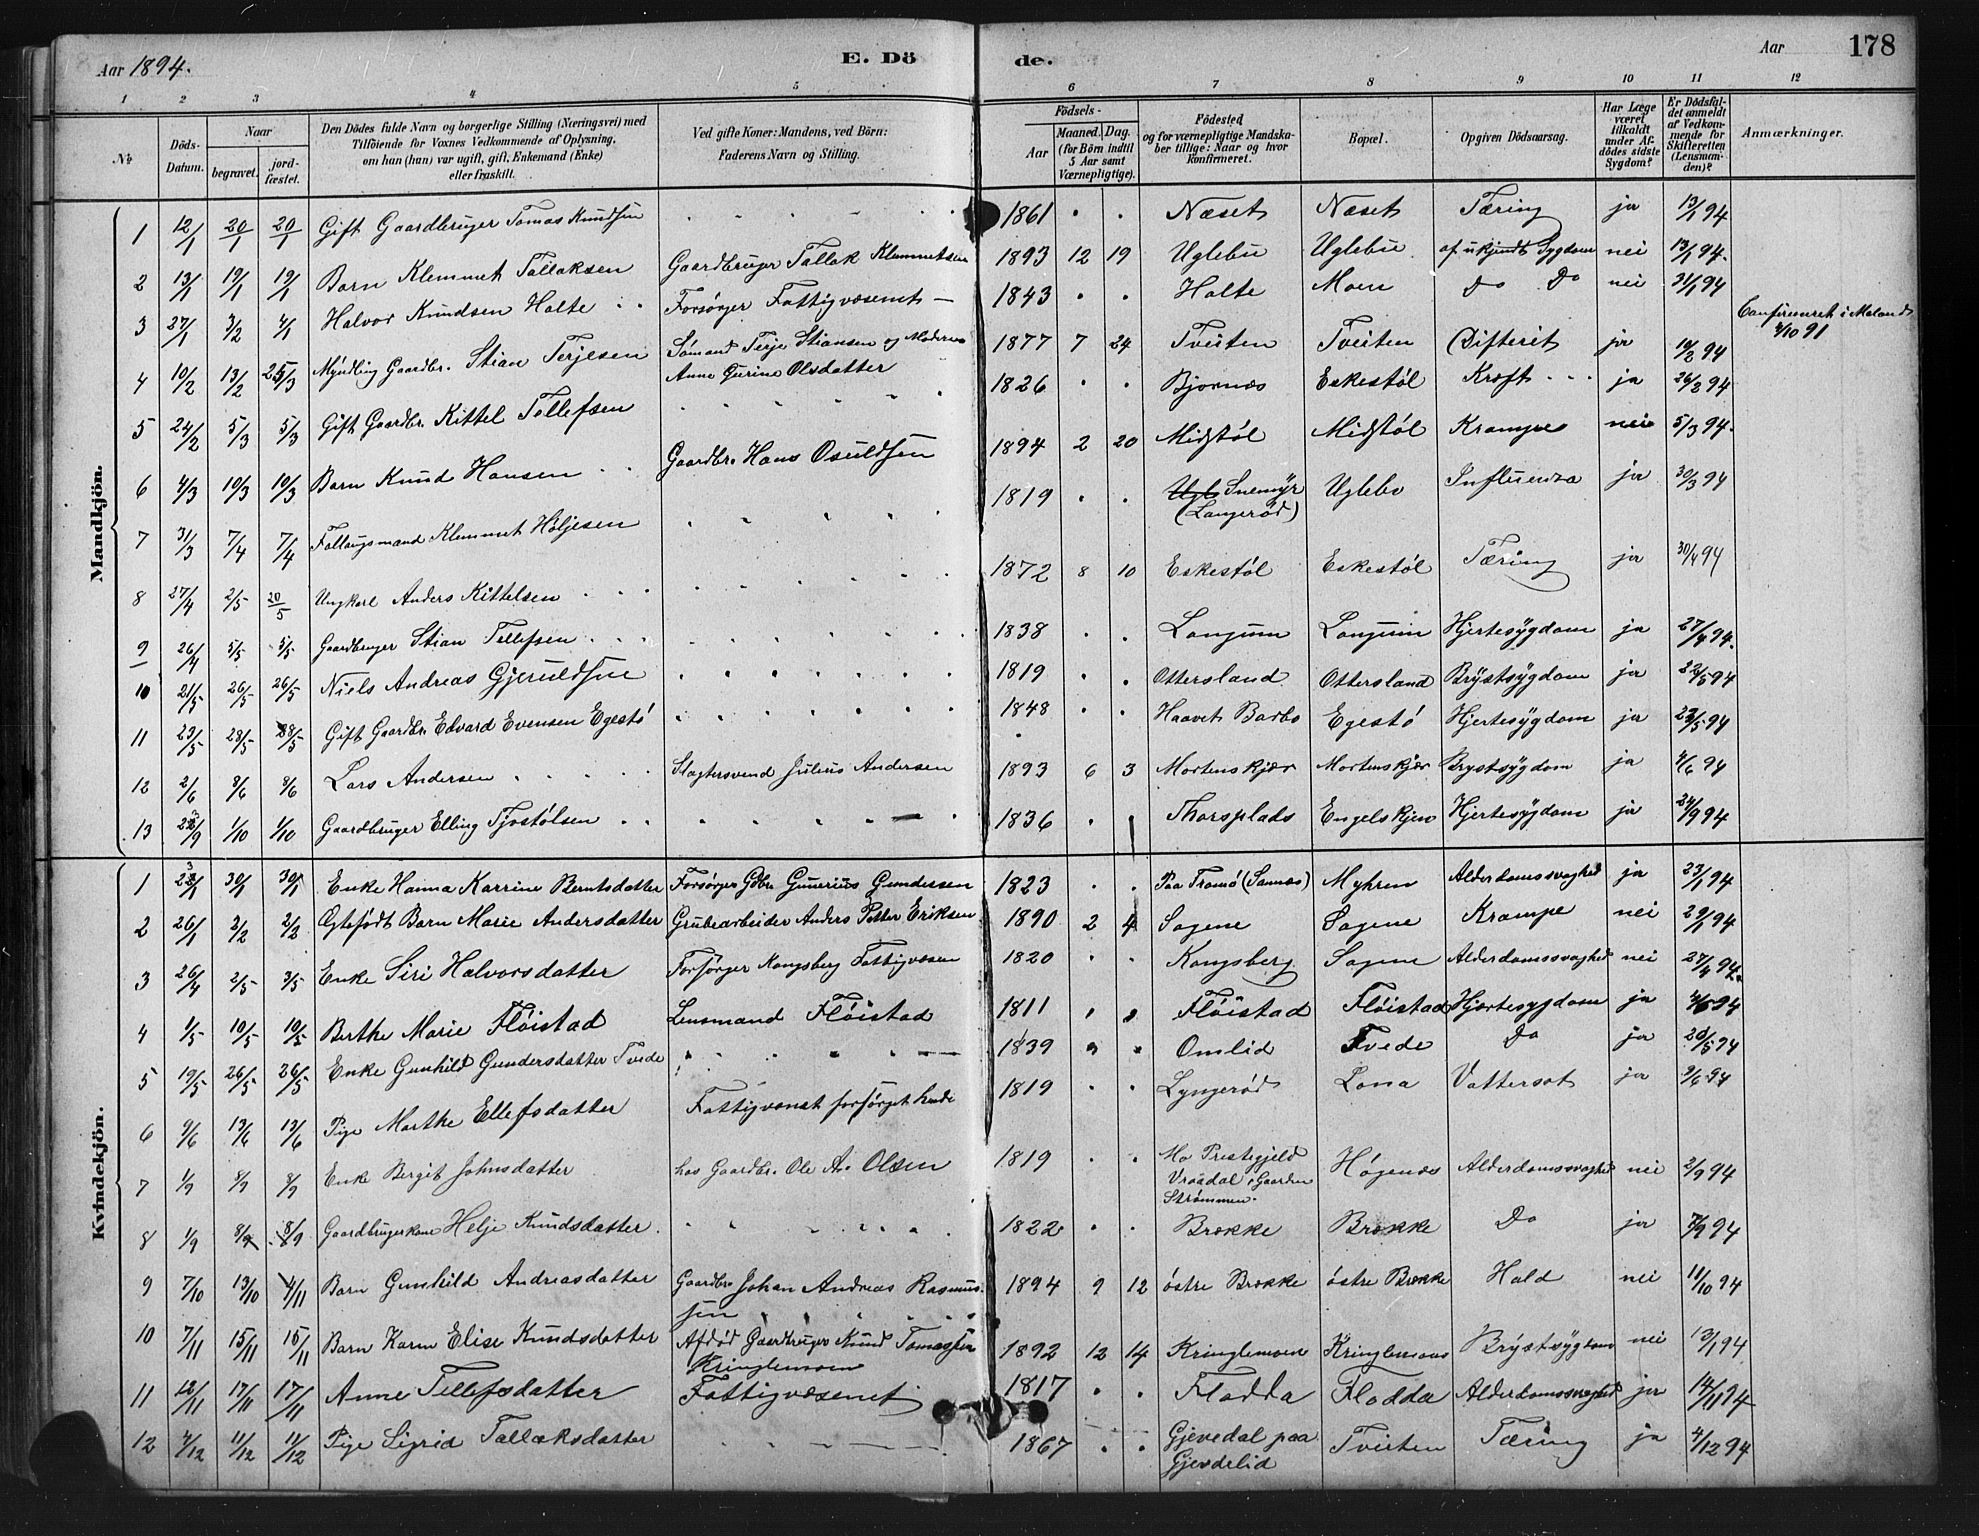 Aar 1894. E. Dö de. Aar 178
1 2 3 4 5 6 7 8 9 10 11 12
№ Döds-Datum. Naar begravet. jord-fæstet. Den Dödes fulde Navn og borgerlige Stilling (Næringsvei) med Tilföiende for Voxnes Vedkommende af Oplysning, om han (hun) var ugift, gift, Enkemand (Enke) eller fraskilt. Ved gifte Koner: Mandens, ved Börn: Faderens Navn og Stilling. Födsels- Aar Maaned. Dag. (for Börn indtil 5 Aar samt Værnepligtige). Födested og for værnepligtige Mandska-ber tillige: Naar og hvor konfirmeret. Bopæl. Opgiven Dödsaarsag. Har Læge været tilkaldt under Af-dödes sidste Sygdom? Er Dödsfal-det anmeldt af Vedkom-mende for Skifteretten (Lensman-den)? Anmærkninger.
Mandkjön.
1 12/1 20/1 20/1 Gift Gaardbruger Tomas Knudsen 1861 Næset Næset Tæring ja 13/1 94
2 13/1 19/1 19/1 Barn Klemmet Tallaksen Gaardbruger Tallak Klemmetsen 1893 12 19 Uglebu Uglebu af ukjendt Sygdom nei 13/1 94.
3 27/1 3/2 4/1 Halvor Knudsen Holte Forsørger Fattigvæsenet 1843 Holte Moen Do Do nei 31/1 94
4 10/2 13/2 25/3 Myndling Gaardbr. Stian Terjesen Sømand Terje Stiansen og Moderen Anne Gurine Olsdatter 1877 7 24 Tveiten Tveiten Difterit ja 19/2 94 Confirmeret i Moland 4/10 91
5 24/2 5/3 5/3 Gift Gaardbr. Kittel Tellefsen 1826 Bjornæs Eskestøl Kræft ja 26/2 94
6 4/3 10/3 10/3 Barn Knud Hansen Gaardbr. Hans Osuldsen 1894 2 20 Midstøl Midstøl Krampe nei 5/3 94.
7 31/3 7/4 7/4 Fallaugsmand Klemmet Høljesen 1819 Snemyr (Langerød) Uglebo Influenza ja 30/3 94
8 27/4 2/5 20/5 Ungkarl Anders Kittelsen 1872 8 10 Eskestøl Eskestøl Tæring ja 30/4 94
9 26/4 5/5 5/5 Gaardbruger Stian Tellefsen 1838 Langum Langum Hjertesygdom ja 27/4 94.
10 21/5 26/5 26/5 Niels Andreas Gjeruldsen 1819 Ottersland Ottersland Brystsygdom ja 22/5 94
11 23/5 28/5 28/5 Gift Gaardbr. Edvard Evensen Egestø 1848 Haavet Barbo Egestø Hjertesygdom ja 23/5 94
12 2/6 8/6 8/6 Lars Andersen Slagtersvend Julius Andersen 1893 6 3 Mortenskjær Mortenskjær Brystsygdom ja 4/6 94
13 23/9 1/10 1/10 Gaardbruger Elling Tjostølsen 1836 Thorsplads Engelskjen Hjertesygdom ja 24/9 94
Kvindekjön.
1 23/1 30/1 30/1 Enke Hanna Karrine Berntsdatter Forsørger Gdbr. Gunerius Gundersen 1823 Paa Tromø (Sannæs) Myhren Alderdomssvaghed ja 23/1 94
2 26/1 2/2 2/2 Ægtefødt Barn Marie Andersdatter Grubearbeider Anders Petter Eriksen 1890 2 4 Sagene Sagene Krampe nei 29/1 94
3 26/4 2/5 3/5 Enke Siri Halvorsdatter Forsørger Kongsberg Fattigvæsen 1820 Kongsberg Sagene Alderdomssvaghed nei 27/4 94.
4 1/5 10/5 10/5 Berthe Marie Fløistad Lensmand Fløistad 1811 Fløistad Fløistad Hjertesygdom ja 94
5 19/5 26/5 26/5 Enke Gunhild Gundersdatter Tvede 1839 Omlid Tvede Do ja 20/5 94
6 9/6 13/6 13/6 Pige Marthe Ellefsdatter Fattigvæsnet forsørget hende 1819 Lyngerød Lona Vattersot ja 9/6 94
7 1/9 8/9 8/9 Enke Bergit Johnsdatter hos Gaardbr. Ole A. Olsen 1819 Mo Prestegjeld Vraadal Gaarden Strømmen. Høgenæs Alderdomssvaghed nei 2/9 94
8 1/9 8/9 8/9 Gaardbrugerkone Helje Knudsdatter 1822 Brække Brække Do ja 7/9 94
9 7/10 13/10 4/11 Barn Gunhild Andreasdatter Gaardbr. Johan Andreas Rasmus-sen 1894 9 12 østre Brække østre Brække Hald nei 11/10 94
10 7/11 15/11 15/11 Barn Karen Elise Knudsdatter Afdød Gaardbruger Knud Tomassen Kringlemoen 1892 12 14 Kringlemoen Kringlemoen Brystsygdom nei 13/1 94
11 12/11 17/11 17/11 Anne Tellefsdatter Fattigvæsenet 1817 Flodda Flodda Alderdomssvaghed ja 14/11 94
12 4/12 11/12 11/12 Pige Sigrid Tallaksdatter 1867 Gjevedal paa Gjevdelid Tveiten Tæring ja 4/12 94